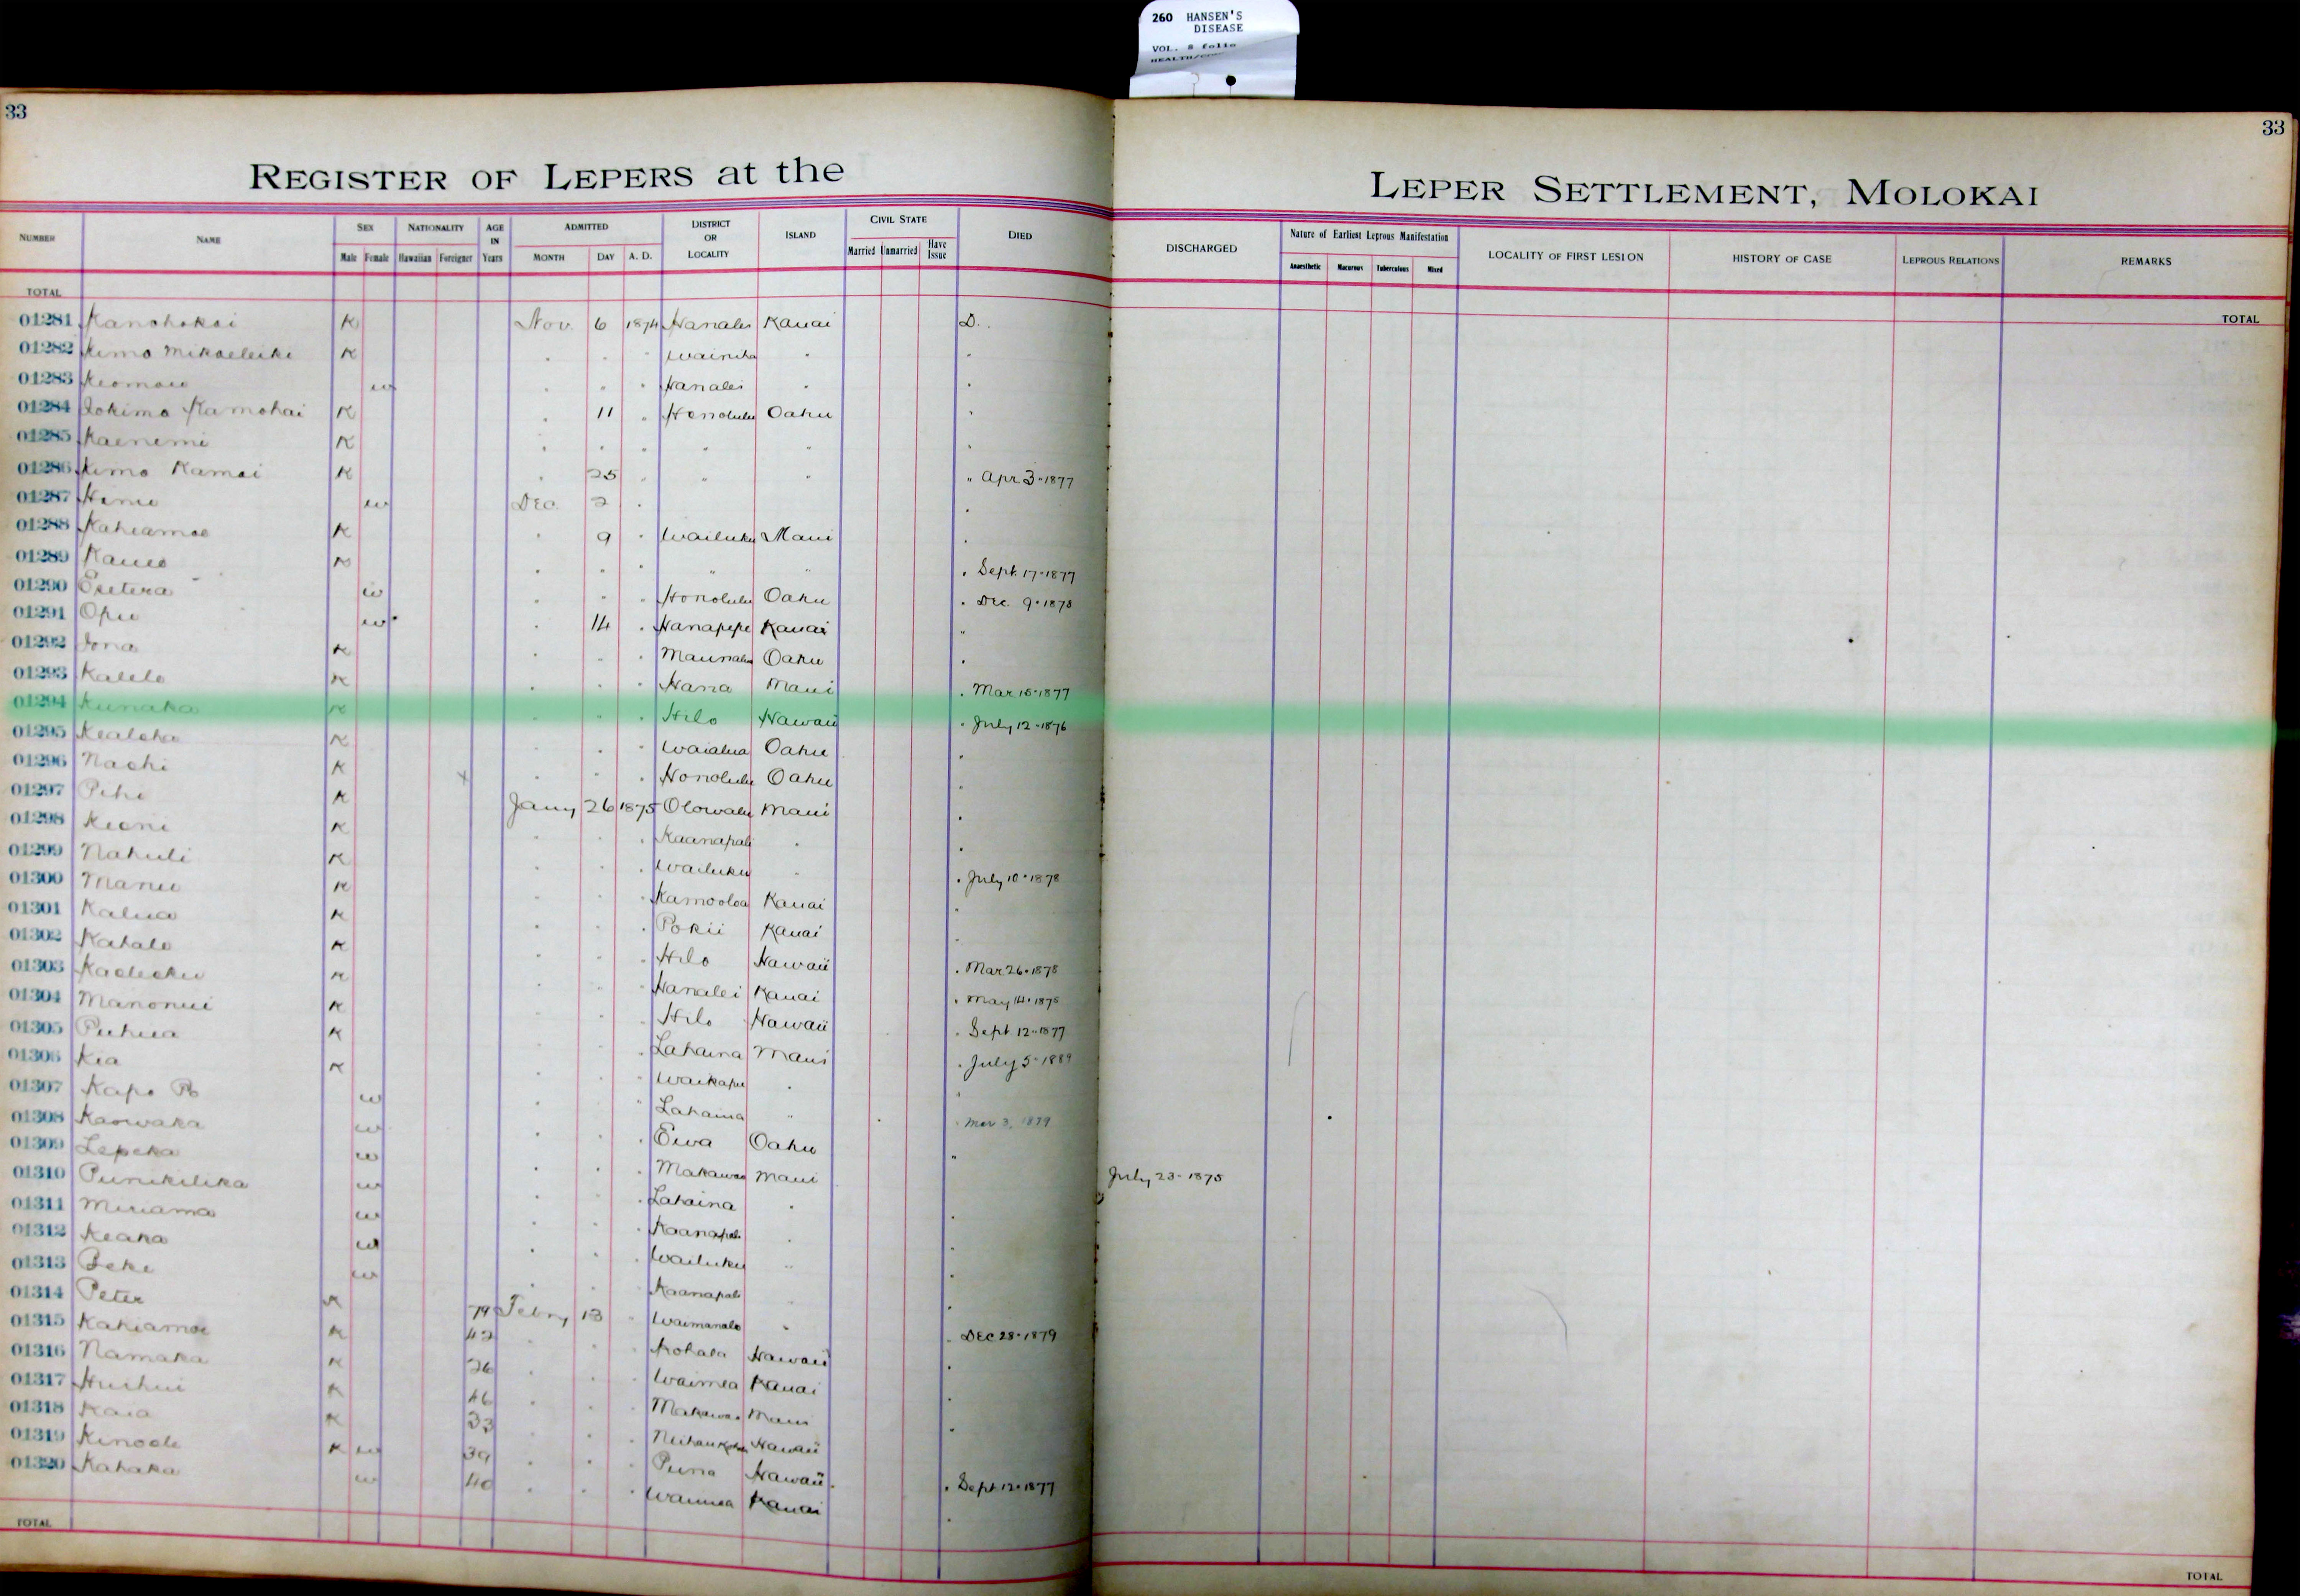 260 HANSEN'S
DISEASE
VOL. 8 folio
33
33
REGISTER OF LEPERS at the LEPER SETTLEMENT, MOLOKAI
NUMBER NAME SEX Male Female NATIONALITY Hawaiian Foreigner AGE IN Years ADMITTED MONTH DAY A. D. DISTRICT OR LOCALITY ISLAND CIVIL STATE Married Unmarried Have Issue DIED DISCHARGED Nature of Earliest Leprous Manifestation Anaesthetic Macurous Tuberculous Mixed LOCALITY OF FIRST LESION HISTORY OF CASE LEPROUS RELATIONS REMARKS
TOTAL TOTAL
01281 Kanohokai K Nov. 6 1874 Hanalei Kauai D.
01282 Kimo Mikaeleike K " " " Wainiha " "
01283 Keomaie w " " " Hanalei " "
01284 Iokimo Kamohai K " 11 " Honolulu Oahu "
01285 Kaenemi K " " " " " "
01286 Kimo Kamai K " 25 " " " " Apr 3-1877
01287 w Dec. 2 " "
01288 Kahiamoe K " 9 " Wailuku Maui "
01289 Kaueo K " " " " " " Sept. 17-1877
01290 w " " " Honolulu Oahu " Dec. 9-1878
01291 Opu w " 14 " Hanapepe Kauai "
01292 Iona K " " " Oahu "
01293 Kalelo K " " " Hana Maui " Mar 15-1877
01294 Kunaka K " " " Hilo Hawaii " July 12-1876
01295 Kealoha K " " " Waialua Oahu "
01296 Naohi K x " " " Honolulu Oahu "
01297 Pihi K Jany 26 1875 Olowalu Maui "
01298 Keoni K " " " Kaanapali " "
01299 Nahuli K " " " Wailuku " " July 10-1878
01300 Manu K " " " Kamooloa Kauai "
01301 Kalua K " " " Pokii Kauai "
01302 Kahalo K " " " Hilo Hawaii " Mar 26-1878
01303 K " " " Hanalei Kauai " May 14-1875
01304 Manonui K " " " Hilo Hawaii " Sept 12-1877
01305 Puhua K " " " Lahaina Maui " July 5-1889
01306 Kia K " " " Waikapu " "
01307 Kapo w " " " Lahaina " " Mar 3, 1879
01308 Kaowaka w " " " Ewa Oahu "
01309 Lepeka w " " " Makawao Maui July 23-1875
01310 Punikilika w " " " Lahaina " "
01311 Miriama w " " " Kaanapali " "
01312 Keaka w " " " Wailuku " "
01313 Beke w " " " Kaanapali "
01314 Peter K 79 Febry 13 " Waimanalo " " Dec 28-1879
01315 Kahiamoe K 42 " " " Kohala Hawaii "
01316 Namaka K 26 " " " Waimea Kauai "
01317 Huihui K 46 " " " Makawao Maui "
01318 Kaia K 33 " " " Hawaii
01319 Kinoole K w 39 " " " Puna Hawaii " Sept 12-1877
01320 Kahaka w 40 " " " Waimea Kauai "
TOTAL TOTAL